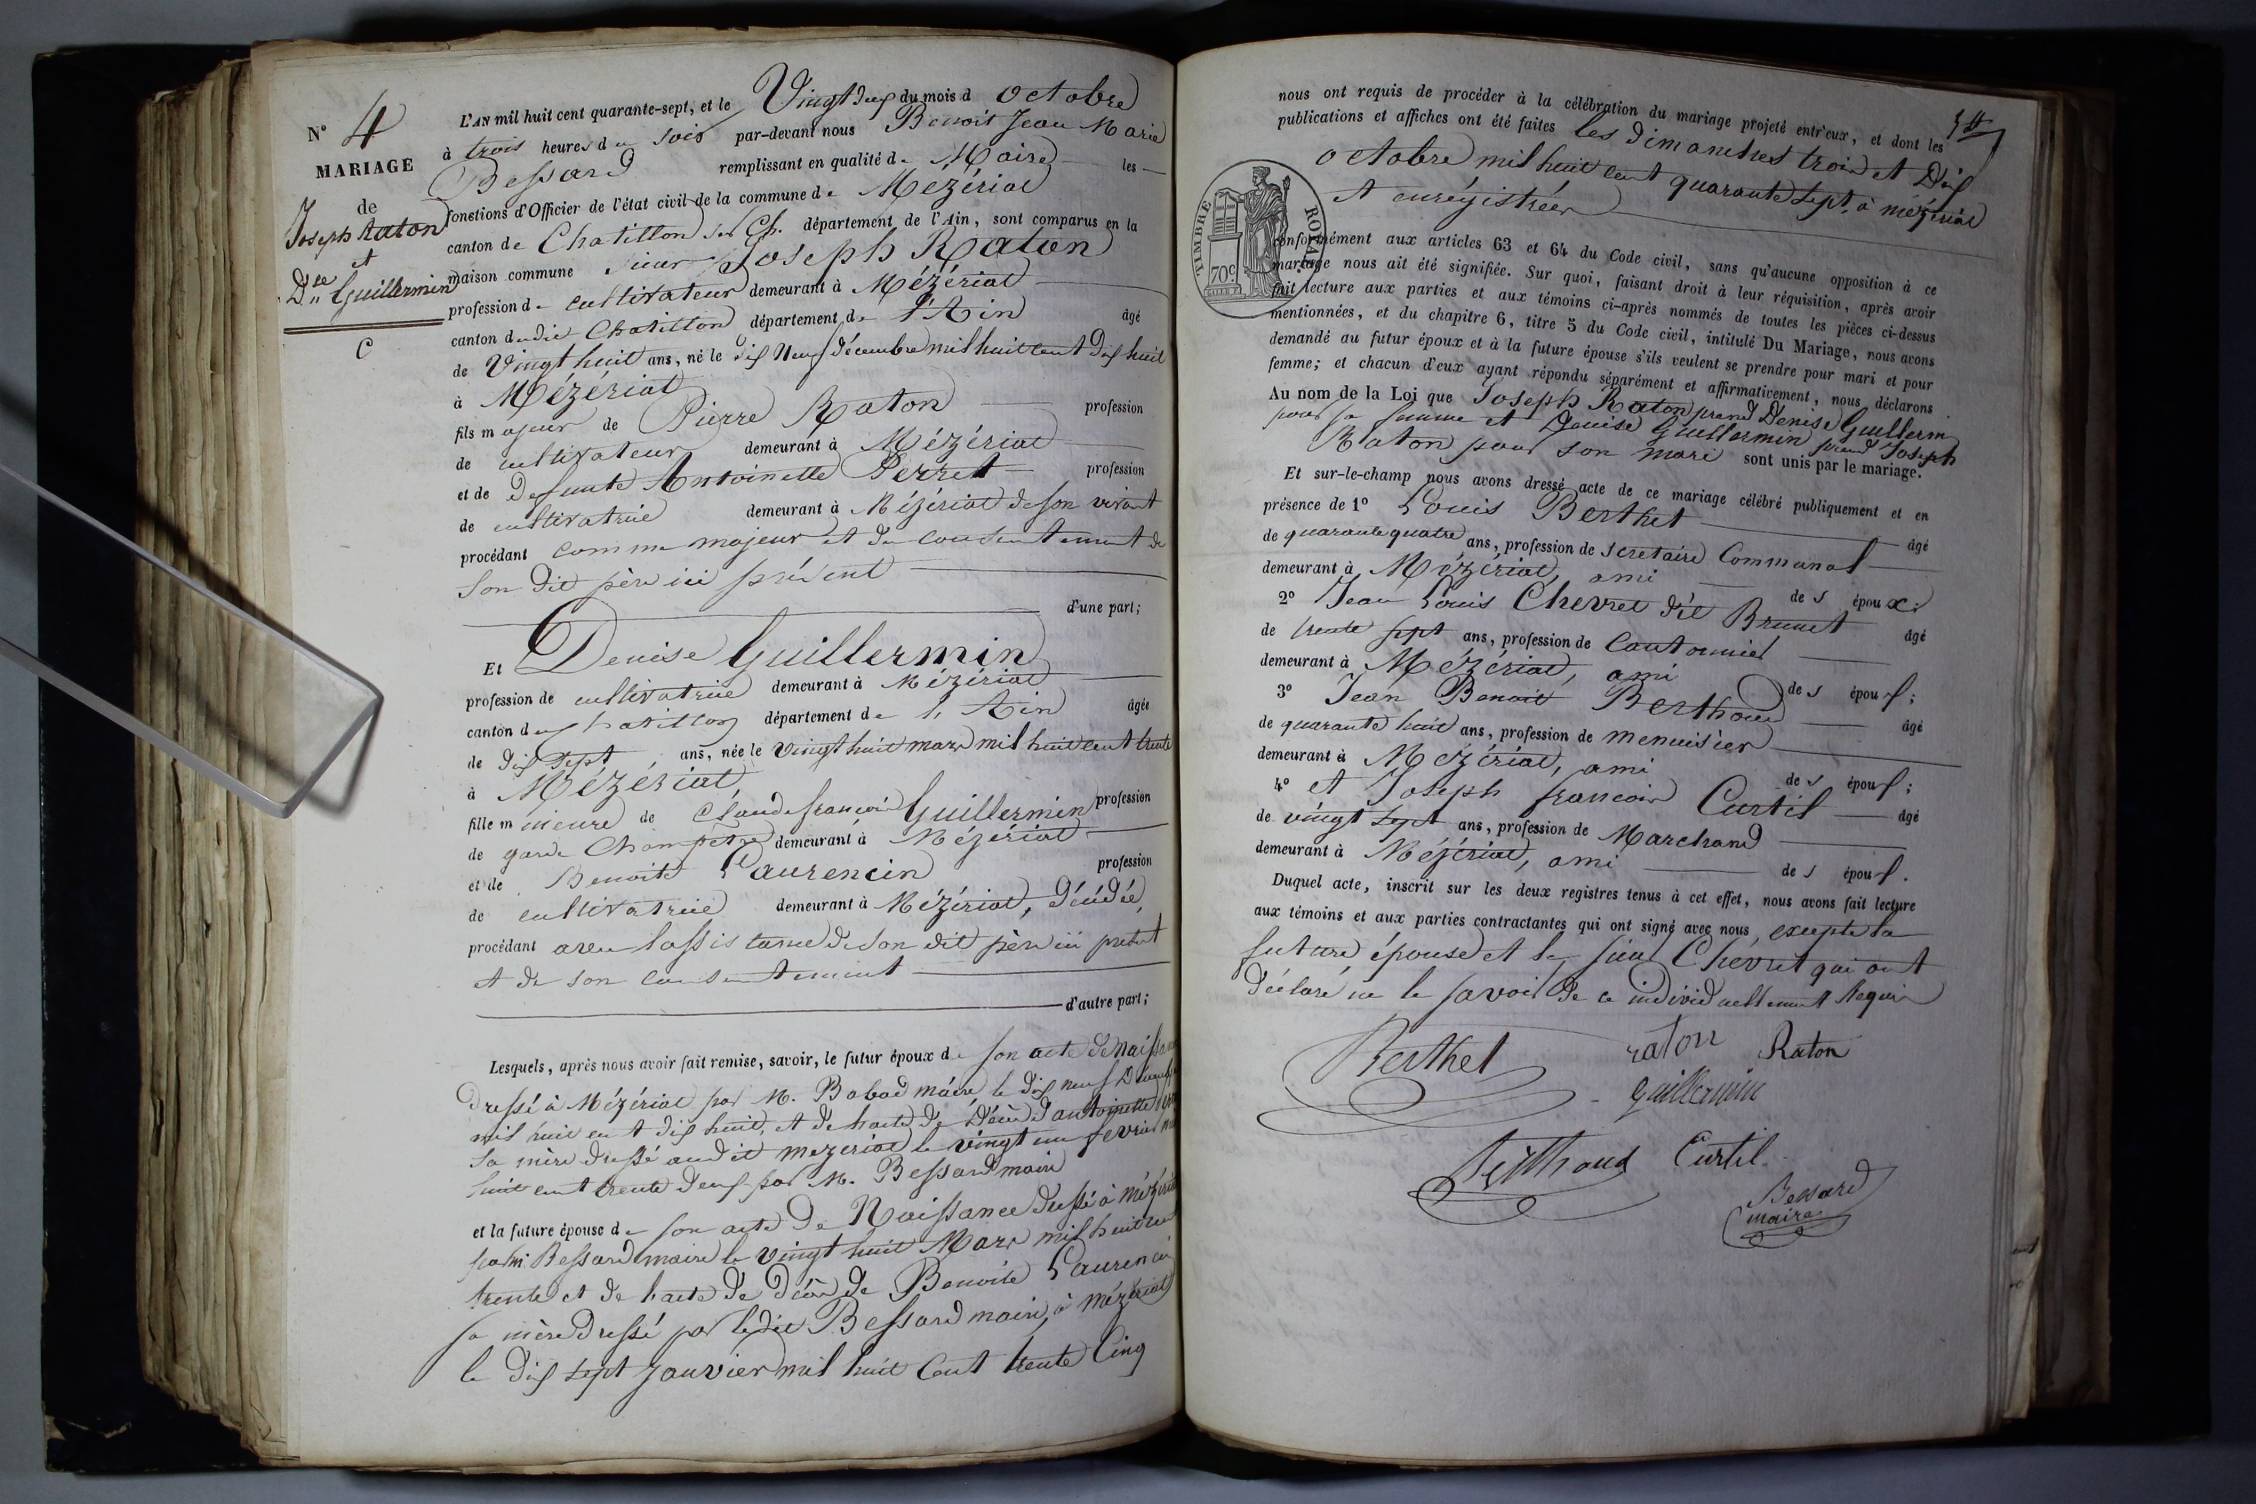 N° 4
MARIAGE
de
Joseph Raton
et
Dse Guillermin
C
L'AN mil huit cent quarante-sept, et le Vingt deux du mois d octobre
à trois heures du soir par-devant nous Benoit Jean Marie
Bessard remplissant en qualité de Maire les
fonctions d'Officier de l'état civil de la commune de Mézériat
canton de Chatillon sur Ch. département de l'Ain, sont comparus en la
maison commune sieur Joseph Raton
profession de cultivateur demeurant à Mézériat
canton dudit Chatillon département de l'Ain âgé
de Vingt huit ans, né le dix Neuf décembre mil huit cent dix huit
à Mézériat
fils majeur de Pierre Raton profession
de cultivateur demeurant à Mézériat
et de defunte Antoinette Perret profession
de cultivatrice demeurant à Mézériat de son vivant
procédant comme majeur et du consentement de
son dit père ici présent
d'une part;
Et Denise Guillermin
profession de cultivatrice demeurant à Mézériat
canton de Chatillon département de l'Ain âgée
de dix sept ans, née le vingt huit mars mil huit cent trente
à Mézériat
fille mineure de Claude françois Guillermin profession
de garde Champêtre demeurant à Mézériat
et de Benoite Laurencin profession
de cultivatrice demeurant à Mézériat, décédée,
procédant avec lassistance de son dit père ici présent
et de son consentement
d'autre part;
Lesquels, après nous avoir fait remise, savoir, le futur époux de son acte de Naissance
dressé à Mézériat par M. Babad maire le dix neuf Décembre
mil huit cent dix huit, et de l'acte de Décès d'antoinette Perret
sa mère dressé audit mezeriat le vingt un fevrier mil
huit cent trente deux par M. Bessard maire
et la future épouse de son acte de Naissance dressé à Mézériat
par M. Bessard maire le vingt huit Mars mil huit cent
trente et de l'acte de décès de Benoite Laurencin
sa mère dressé par ledit Bessard maire, à Mézériat
le dix sept janvier mil huit Cent trente Cinq
nous ont requis de procéder à la célébration du mariage projeté entr'eux, et dont les
publications et affiches ont été faites les dimanches trois et Dix
octobre mil huit cent quarante sept, à mézériat
et enrégistrées
TIMBRE ROYAL
70c
conformément aux articles 63 et 64 du Code civil, sans qu'aucune opposition à ce
mariage nous ait été signifiée. Sur quoi, faisant droit à leur réquisition, après avoir
fait lecture aux parties et aux témoins ci-après nommés de toutes les pièces ci-dessus
mentionnées, et du chapitre 6, titre 5 du Code civil, intitulé Du Mariage, nous avons
demandé au futur époux et à la future épouse s'ils veulent se prendre pour mari et pour
femme; et chacun d'eux ayant répondu séparément et affirmativement, nous déclarons
Au nom de la Loi que Joseph Raton prend Denise Guillermin
pour sa femme et Denise Guillermin prend Joseph
Raton pour son mari sont unis par le mariage.
Et sur-le-champ nous avons dressé acte de ce mariage célébré publiquement et en
présence de 1° Louis Berthet âgé
de quarante quatre ans, profession de secretaire Communal
demeurant à Mézériat, ami de s époux;
2° Jean Louis Chevret dit Brunet âgé
de trente sept ans, profession de Cantonnier
demeurant à Mézériat, ami de s époux;
3° Jean Benoit Berthoud âgé
de quarante huit ans, profession de menuisier
demeurant à Mézériat, ami de s époux;
4° et Joseph françois Curtil âgé
de vingt sept ans, profession de Marchand
demeurant à Mézériat, ami de s époux.
Duquel acte, inscrit sur les deux registres tenus à cet effet, nous avons fait lecture
aux témoins et aux parties contractantes qui ont signé avec nous excepté la
future épouse et le sieur Chevret qui ont
déclaré ne le savoir de ce individuellement Requis
Berthet raton Raton
guillermin
Berthoud Curtil
Bessard
maire